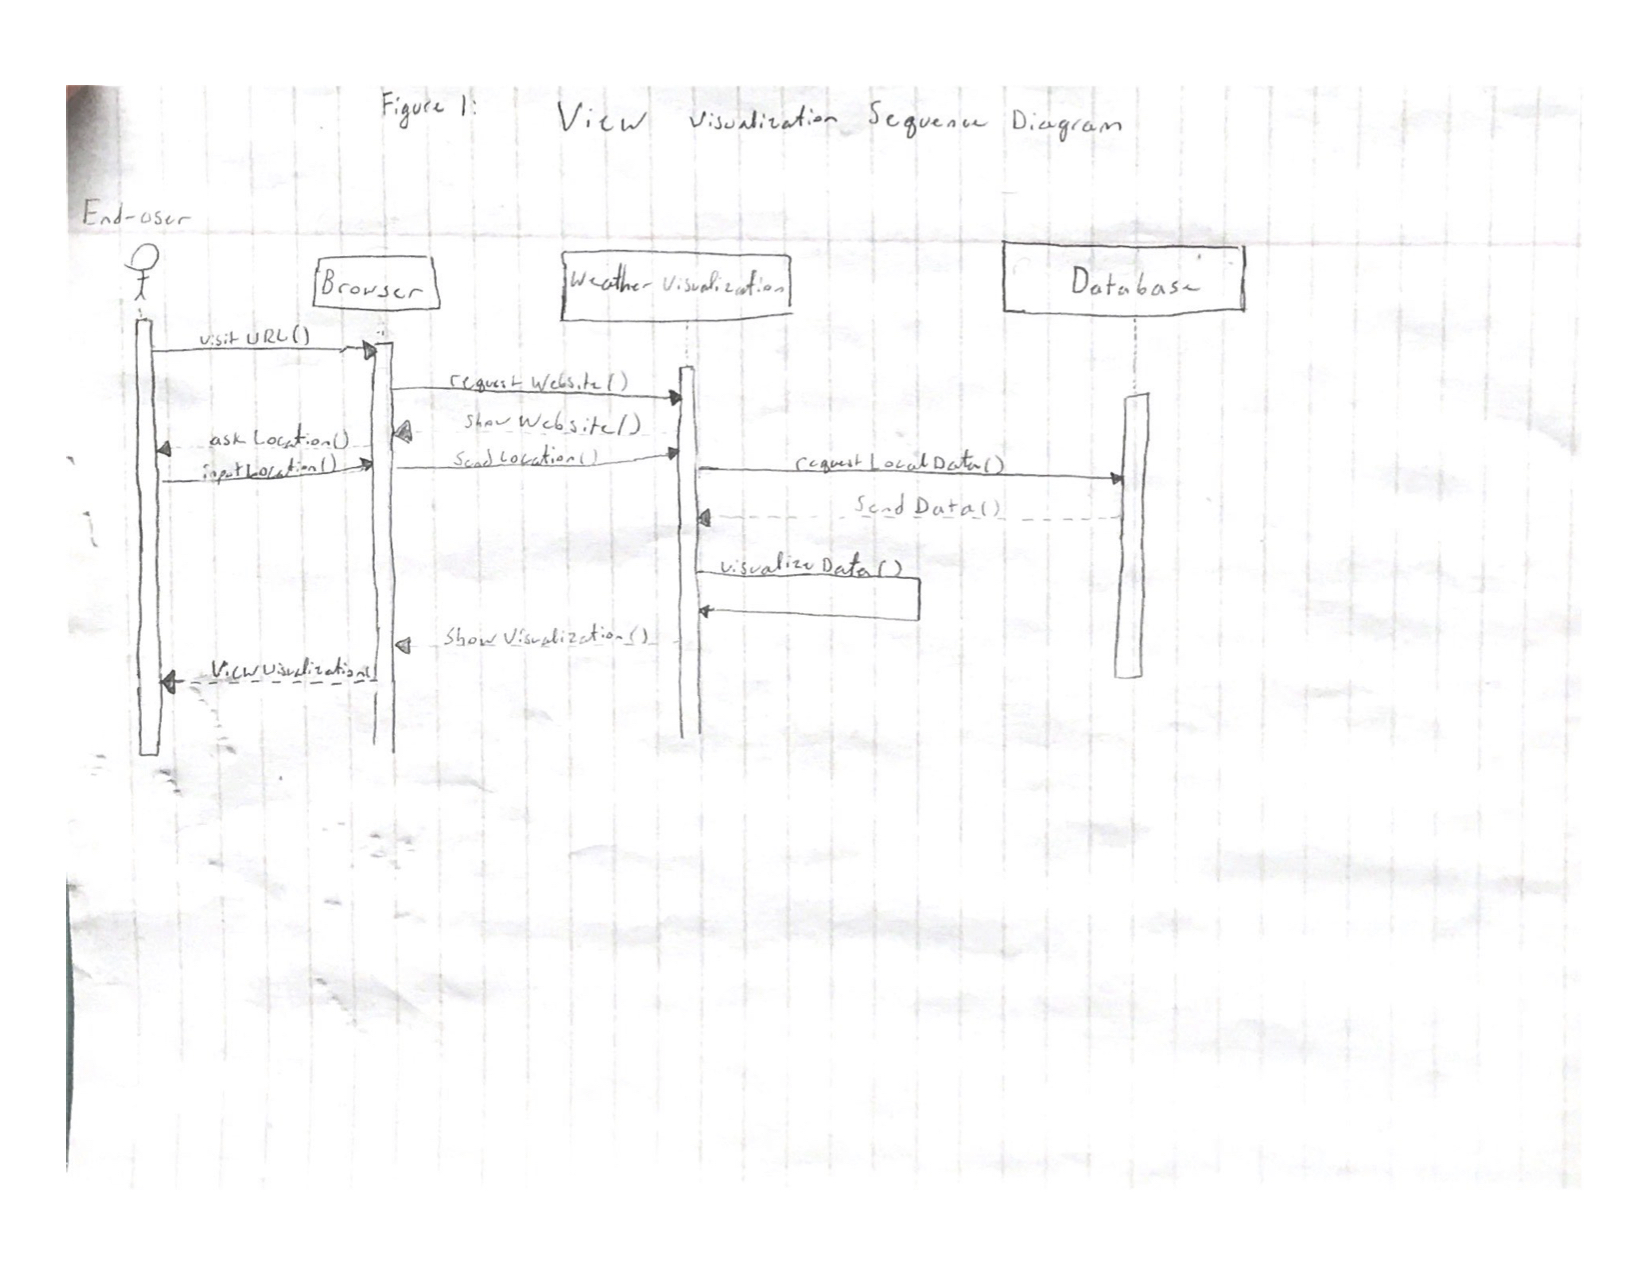 Figure 1: View Visualization Sequence Diagram
End-user
Browser
Weather Visualization
Database
visit URL()
request Website()
Show Website()
ask Location()
input Location()
Send Location()
request Local Data()
Send Data()
visualize Data()
Show Visualization()
View Visualization(